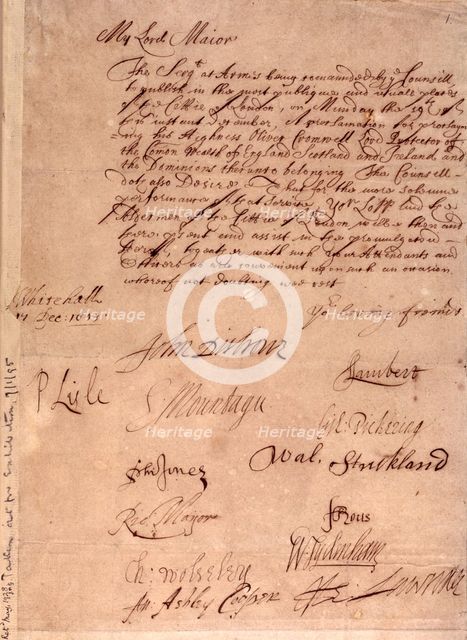 1.
My Lord Maior
The Serg.t at Armes being commaunded by ye Counsill
to publish in the most publique and usuall places
of the Cittie of London, on Munday the 19th of
this instant December, A proclamation for proclaym
ing his Highness Oliver Cromwell Lord Protector of
the Comon Wealth of England Scotland and Ireland, and
the Dominions thereunto belonging The Counsell
doth also Desire That for the more solemne
performance of that service Yor Lopp and the
Aldermen of the Cittie of London will be then and
there present and assist in the promulgation
thereof, together with such your Attendants and
Officers as are convenient upon such an occasion
whereof not doubting wee rest
Whitehall
Dec: 1653
Yor loving friends
P Lisle
Lambert
E Mountagu
Gil: Pickering
Wal. Strickland
John Jones
Ric: Maijor
F Rous
W Sydenham
Ch: Wolseley
An: Ashley Cooper
Taken out for Exhibition
Heritage
Heritage
Heritage
Heritage
Heritage
Heritage
Heritage
©